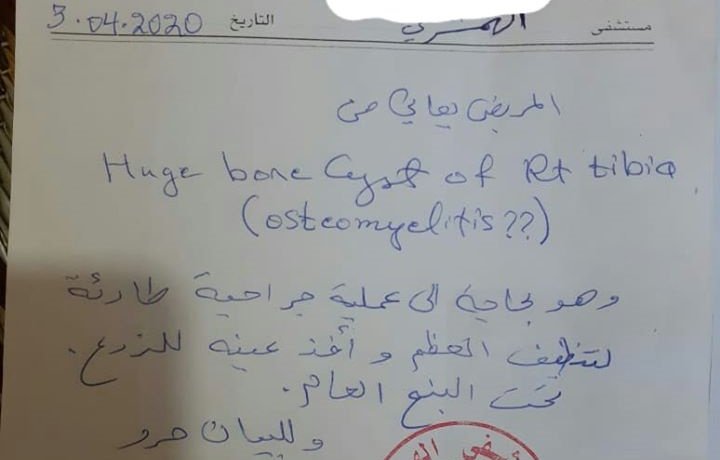 مستشفى الهمشري التاريخ 3.04.2020
المريض يعاني من
Huge bone Cyst of Rt tibia
(osteomyelitis??)
وهو بحاجة الى عملية جراحية طارئة
لتنظيف العظم و أخذ عينه للزرع.
تحت البنج العام.
وللبيان حرر